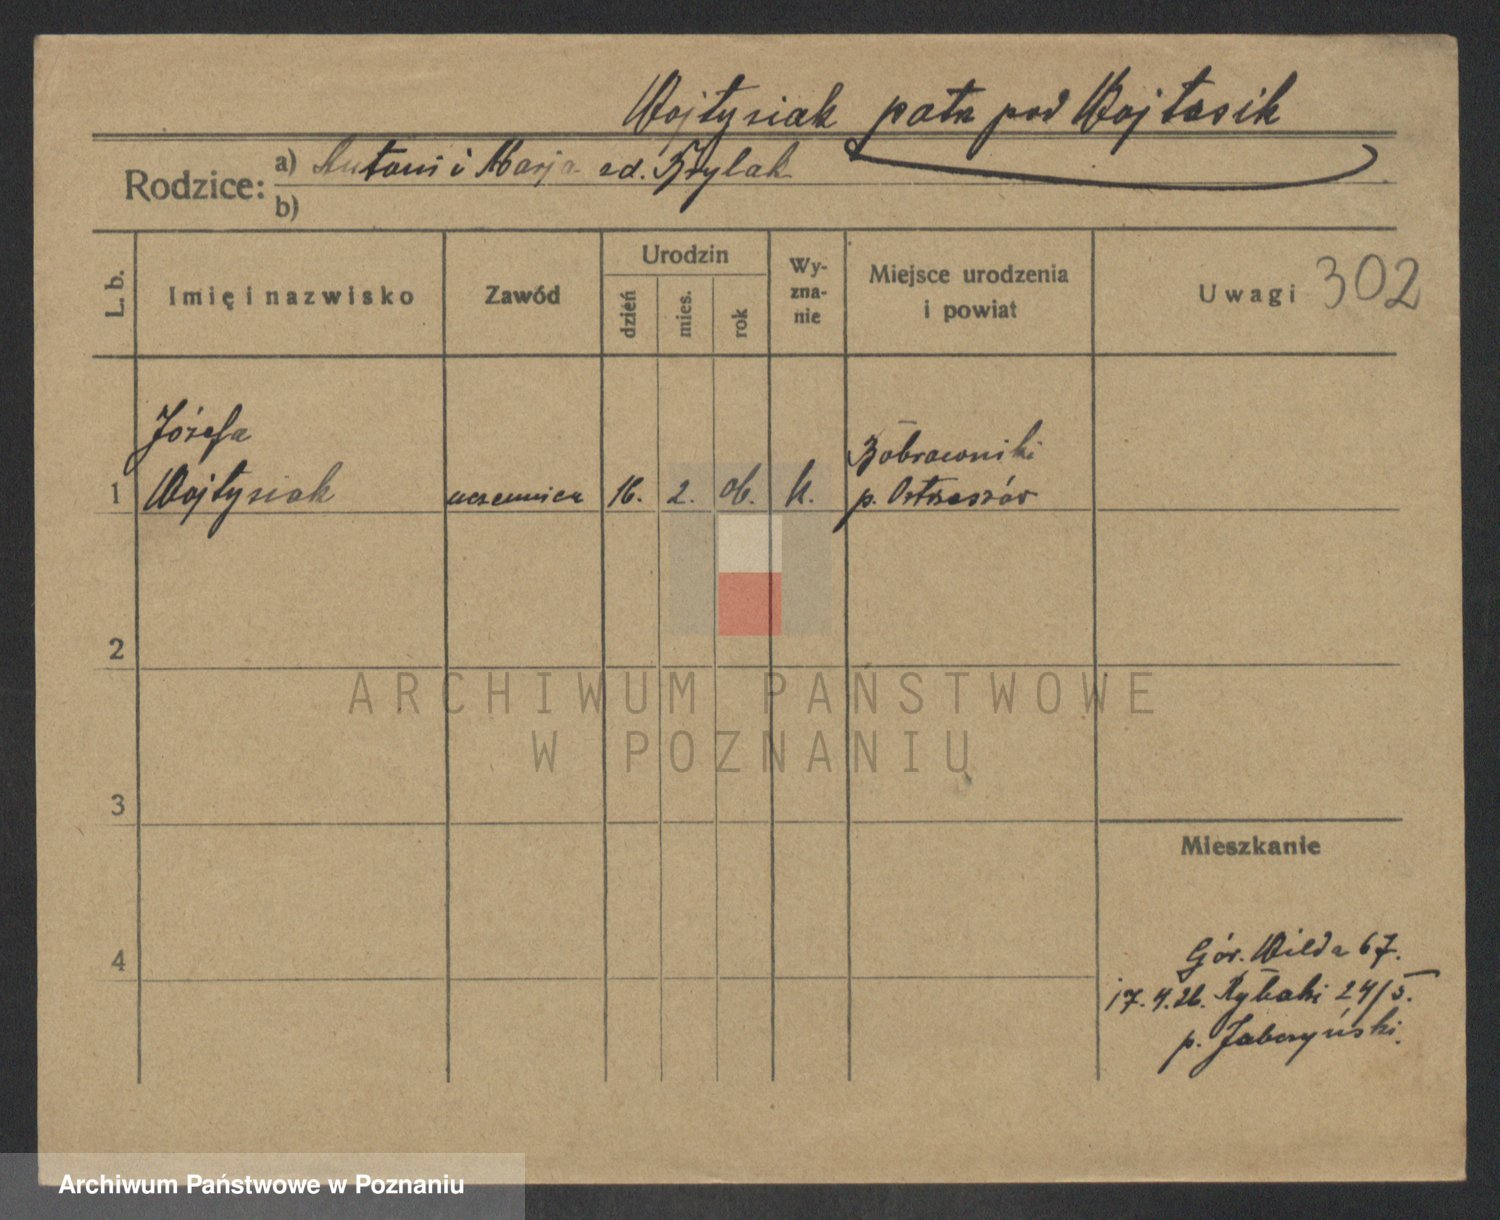 Wojtysiak patrz pod Wojtasik
Rodzice: a) Antoni i Marja zd.
b)
L. b.
Imię i nazwisko
Zawód
Urodzin
dzień
mies.
rok
Wy-
zna-
nie
Miejsce urodzenia
i powiat
Uwagi 302
Józefa
Bobrowniki
1 Wojtysiak uczennica 16. 2. 06. k. p. Ostrzeszów
2
3
4
Mieszkanie
Gór. Wilda 67.
17.4.26. Rybaki 24/5.
p. Jabczyński.
ARCHIWUM PAŃSTWOWE
W POZNANIU
Archiwum Państwowe w Poznaniu